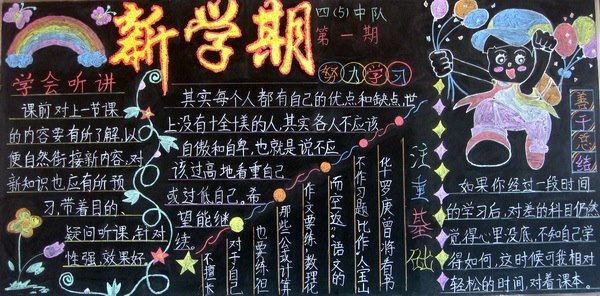 新学期
四(5)中队
第一期
学会听讲
课前对上一节课
的内容要有所了解,以
便自然衔接新内容,对
新知识也应有所预
习,带着目的、
疑问听课,针对
性强,效果好。
努力学习
其实每个人都有自己的优点和缺点,世
上没有十全十美的人,其实各人不应该
自傲和自卑,也就是说不应
该过高地看重自己
或过低自己。希
望能继
续
注重基础
华罗庚曾将看书
不作习题比作"入宝山
而空返"。语文的
作文要练,数理化
那些公式计算
也要练,但
对于自己
不擅长
善于总结
如果你经过一段时间
的学习后,对差的科目仍然
觉得心里没底,不知自己学
得如何,这时候可找相对
轻松的时间,对着课本。